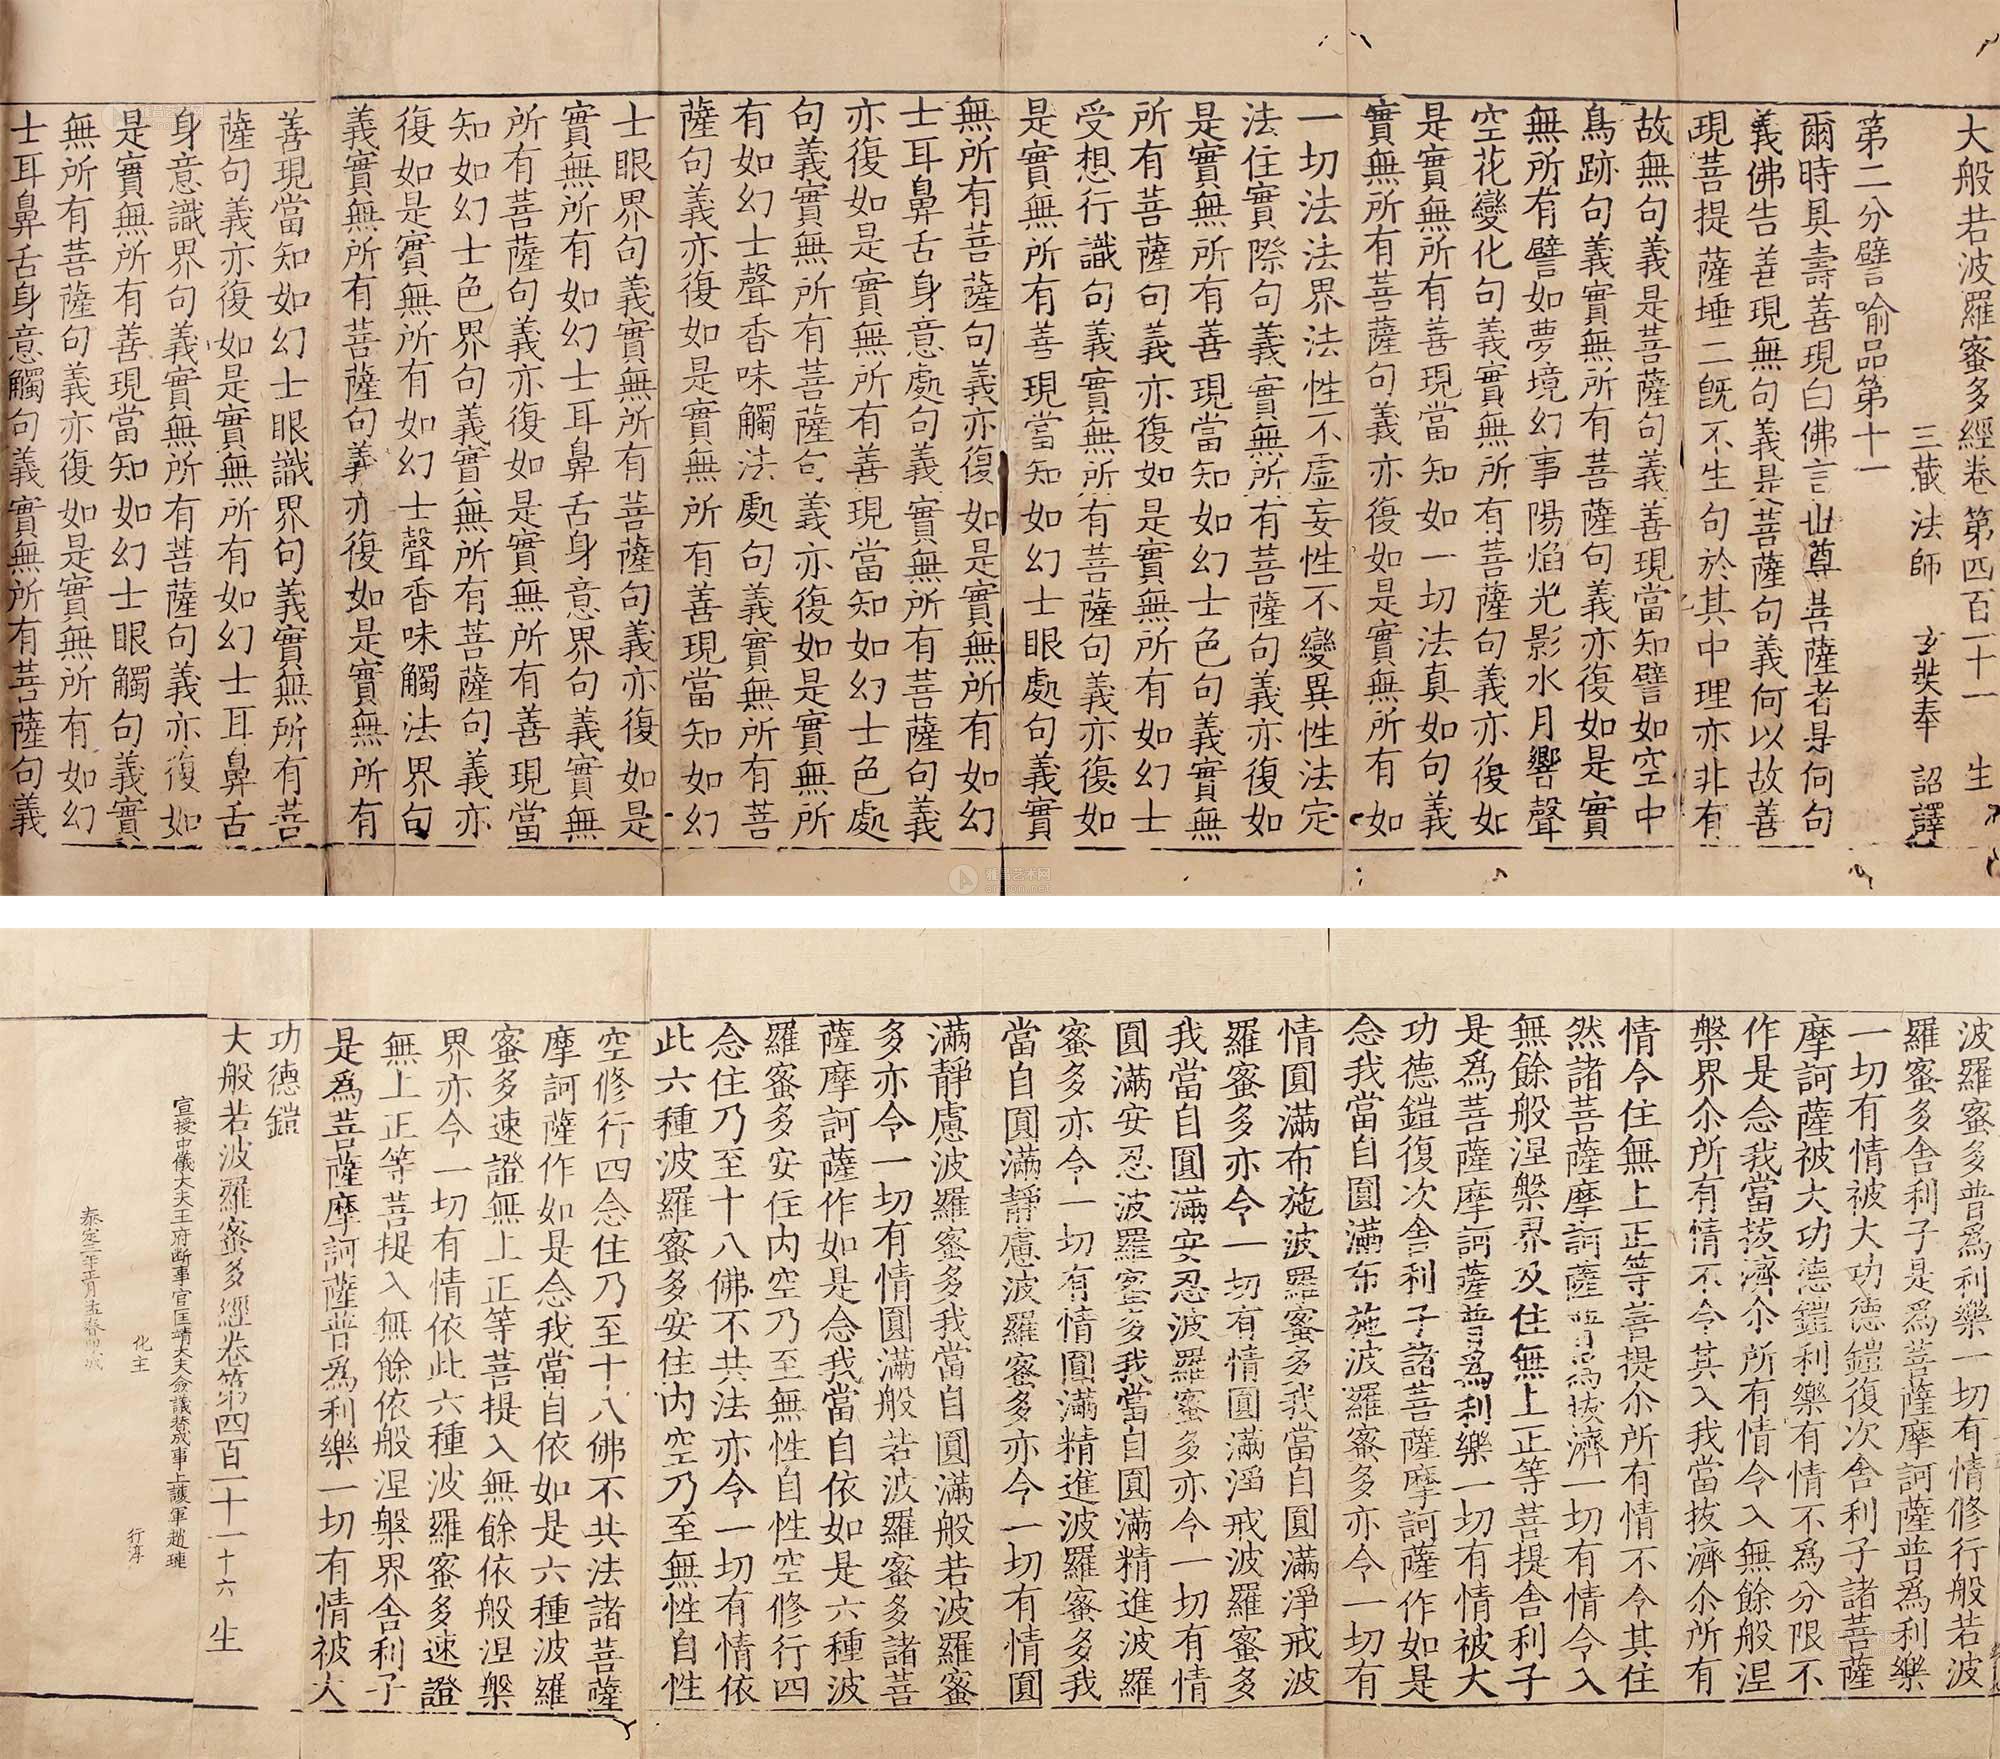 大般若波羅蜜多經卷第四百一十一 生
三藏法師 玄奘奉 詔譯
第二分譬喻品第十一
爾時具壽善現白佛言世尊菩薩者是何句
義佛告善現無句義是菩薩句義何以故善
現菩提薩埵二旣不生句於其中理亦非有
故無句義是菩薩句義善現當知譬如空中
鳥跡句義實無所有菩薩句義亦復如是實
無所有譬如夢境幻事陽焰光影水月響聲
空花變化句義實無所有菩薩句義亦復如
是實無所有善現當知如一切法真如句義
實無所有菩薩句義亦復如是實無所有如
一切法法界法性不虛妄性不變異性法定
法住實際句義實無所有菩薩句義亦復如
是實無所有善現當知如幻士色句義實無
所有菩薩句義亦復如是實無所有如幻士
受想行識句義實無所有菩薩句義亦復如
是實無所有善現當知如幻士眼處句義實
無所有菩薩句義亦復如是實無所有如幻
士耳鼻舌身意處句義實無所有菩薩句義
亦復如是實無所有善現當知如幻士色處
句義實無所有菩薩句義亦復如是實無所
有如幻士聲香味觸法處句義實無所有菩
薩句義亦復如是實無所有善現當知如幻
士眼界句義實無所有菩薩句義亦復如是
實無所有如幻士耳鼻舌身意界句義實無
所有菩薩句義亦復如是實無所有善現當
知如幻士色界句義實無所有菩薩句義亦
復如是實無所有如幻士聲香味觸法界句
義實無所有菩薩句義亦復如是實無所有
善現當知如幻士眼識界句義實無所有菩
薩句義亦復如是實無所有如幻士耳鼻舌
身意識界句義實無所有菩薩句義亦復如
是實無所有善現當知如幻士眼觸句義實
無所有菩薩句義亦復如是實無所有如幻
士耳鼻舌身意觸句義實無所有菩薩句義
波羅蜜多普爲利樂一切有情修行般若波
羅蜜多舍利子是爲菩薩摩訶薩普爲利樂
一切有情被大功德鎧復次舍利子諸菩薩
摩訶薩被大功德鎧利樂有情不爲分限不
作是念我當拔濟尒所有情令入無餘般涅
槃界尒所有情不令其入我當拔濟尒所有
情令住無上正等菩提尒所有情不令其住
然諸菩薩摩訶薩普爲拔濟一切有情令入
無餘般涅槃界及住無上正等菩提舍利子
是爲菩薩摩訶薩普爲利樂一切有情被大
功德鎧復次舍利子諸菩薩摩訶薩作如是
念我當自圓滿布施波羅蜜多亦令一切有
情圓滿布施波羅蜜多我當自圓滿淨戒波
羅蜜多亦令一切有情圓滿淨戒波羅蜜多
我當自圓滿安忍波羅蜜多亦令一切有情
圓滿安忍波羅蜜多我當自圓滿精進波羅
蜜多亦令一切有情圓滿精進波羅蜜多我
當自圓滿靜慮波羅蜜多亦令一切有情圓
滿靜慮波羅蜜多我當自圓滿般若波羅蜜
多亦令一切有情圓滿般若波羅蜜多諸菩
薩摩訶薩作如是念我當自依如是六種波
羅蜜多安住內空乃至無性自性空修行四
念住乃至十八佛不共法亦令一切有情依
此六種波羅蜜多安住內空乃至無性自性
空修行四念住乃至十八佛不共法諸菩薩
摩訶薩作如是念我當自依如是六種波羅
蜜多速證無上正等菩提入無餘依般涅槃
界亦令一切有情依此六種波羅蜜多速證
無上正等菩提入無餘依般涅槃界舍利子
是爲菩薩摩訶薩普爲利樂一切有情被大
功德鎧
大般若波羅蜜多經卷第四百一十一 十六 生
宣授中儀大夫王府斷事官匡靖大夫僉議替成事上護軍趙璉
化主 行淳
泰定三年正月
雅昌艺术网
artron.net